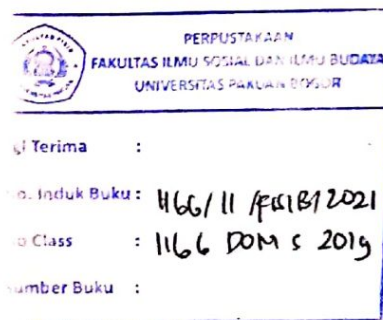 PERPUSTAKAAN
FAKULTAS ILMU SOSIAL DAN ILMU BUDAYA
UNIVERSITAS PAKUAN BOGOR
Terima :
o. Induk Buku : 1166/11/FISIB/2021
o Class : 1166 DOM S 2019
umber Buku :